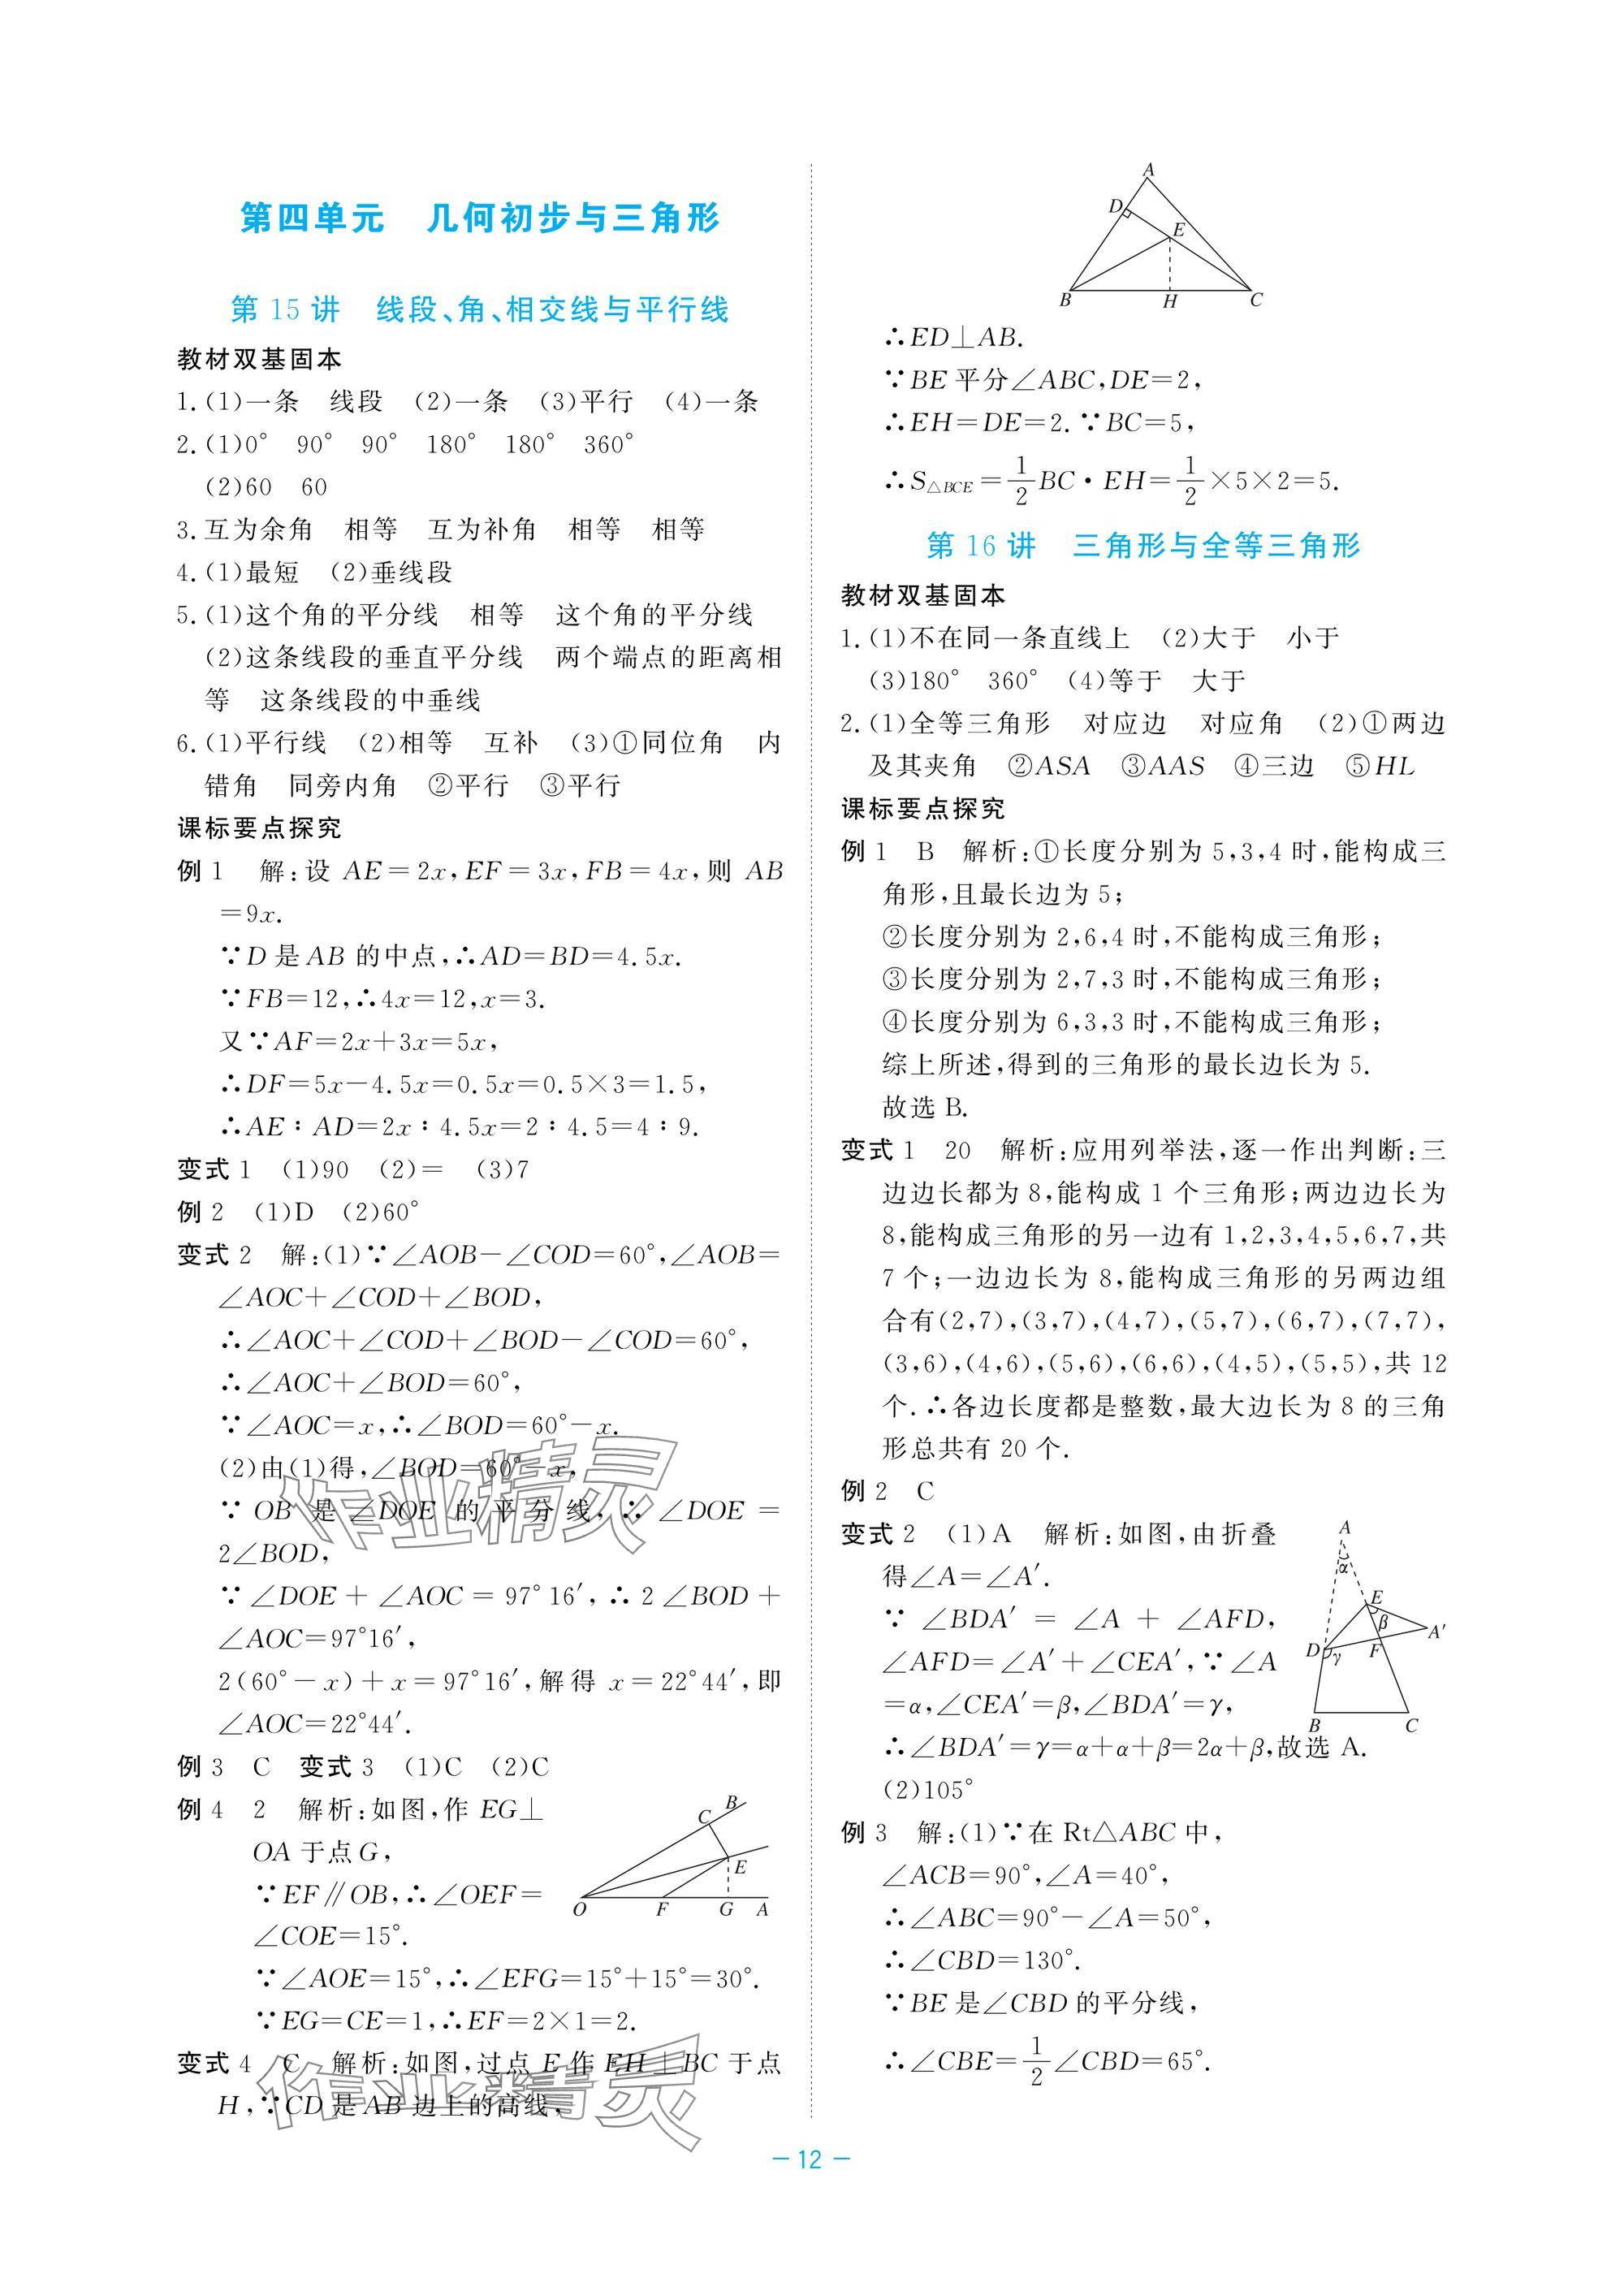 第四单元　几何初步与三角形
第 15 讲　线段、角、相交线与平行线
教材双基固本
1.(1)一条　线段　(2)一条　(3)平行　(4)一条
2.(1)0°　90°　90°　180°　180°　360°
(2)60　60
3.互为余角　相等　互为补角　相等　相等
4.(1)最短　(2)垂线段
5.(1)这个角的平分线　相等　这个角的平分线
(2)这条线段的垂直平分线　两个端点的距离相
等　这条线段的中垂线
6.(1)平行线　(2)相等　互补　(3)①同位角　内
错角　同旁内角　②平行　③平行
课标要点探究
例 1　解:设 AE=2x,EF=3x,FB=4x,则 AB
=9x.
∵D 是 AB 的中点,∴AD=BD=4.5x.
∵FB=12,∴4x=12,x=3.
又∵AF=2x+3x=5x,
∴DF=5x-4.5x=0.5x=0.5×3=1.5,
∴AE∶AD=2x∶4.5x=2∶4.5=4∶9.
变式 1　(1)90　(2)=　(3)7
例 2　(1)D　(2)60°
变式 2　解:(1)∵∠AOB-∠COD=60°,∠AOB=
∠AOC+∠COD+∠BOD,
∴∠AOC+∠COD+∠BOD-∠COD=60°,
∴∠AOC+∠BOD=60°,
∵∠AOC=x,∴∠BOD=60°-x.
(2)由(1)得,∠BOD=60°-x,
∵ OB 是 ∠DOE 的平分线,∴ ∠DOE =
2∠BOD,
∵ ∠DOE + ∠AOC = 97°16′,∴ 2∠BOD +
∠AOC=97°16′,
2(60°-x)+x=97°16′,解得 x=22°44′,即
∠AOC=22°44′.
例 3　C　变式 3　(1)C　(2)C
例 4　2　解析:如图,作 EG⊥
OA 于点 G,
∵EF∥OB,∴∠OEF=
∠COE=15°.
∵∠AOE=15°,∴∠EFG=15°+15°=30°.
∵EG=CE=1,∴EF=2×1=2.
B
C
E
O
F
G
A
变式 4　C　解析:如图,过点 E 作 EH⊥BC 于点
H,∵CD 是 AB 边上的高线,
作业精灵
作业精灵
A
D
E
B
H
C
∴ED⊥AB.
∵BE 平分∠ABC,DE=2,
∴EH=DE=2.∵BC=5,
∴S△BCE=1/2 BC·EH=1/2×5×2=5.
第 16 讲　三角形与全等三角形
教材双基固本
1.(1)不在同一条直线上　(2)大于　小于
(3)180°　360°　(4)等于　大于
2.(1)全等三角形　对应边　对应角　(2)①两边
及其夹角　②ASA　③AAS　④三边　⑤HL
课标要点探究
例 1　B　解析:①长度分别为 5,3,4 时,能构成三
角形,且最长边为 5;
②长度分别为 2,6,4 时,不能构成三角形;
③长度分别为 2,7,3 时,不能构成三角形;
④长度分别为 6,3,3 时,不能构成三角形;
综上所述,得到的三角形的最长边长为 5.
故选 B.
变式 1　20　解析:应用列举法,逐一作出判断:三
边边长都为 8,能构成 1 个三角形;两边边长为
8,能构成三角形的另一边有 1,2,3,4,5,6,7,共
7 个;一边边长为 8,能构成三角形的另两边组
合有(2,7),(3,7),(4,7),(5,7),(6,7),(7,7),
(3,6),(4,6),(5,6),(6,6),(4,5),(5,5),共 12
个.∴各边长度都是整数,最大边长为 8 的三角
形总共有 20 个.
例 2　C
变式 2　(1)A　解析:如图,由折叠
得∠A=∠A′.
∵ ∠BDA′ = ∠A + ∠AFD,
∠AFD=∠A′+∠CEA′,∵∠A
=α,∠CEA′=β,∠BDA′=γ,
∴∠BDA′=γ=α+α+β=2α+β,故选 A.
(2)105°
A
α
E
β
A′
D
γ
F
B
C
例 3　解:(1)∵在 Rt△ABC 中,
∠ACB=90°,∠A=40°,
∴∠ABC=90°-∠A=50°,
∴∠CBD=130°.
∵BE 是∠CBD 的平分线,
∴∠CBE=1/2∠CBD=65°.
— 12 —